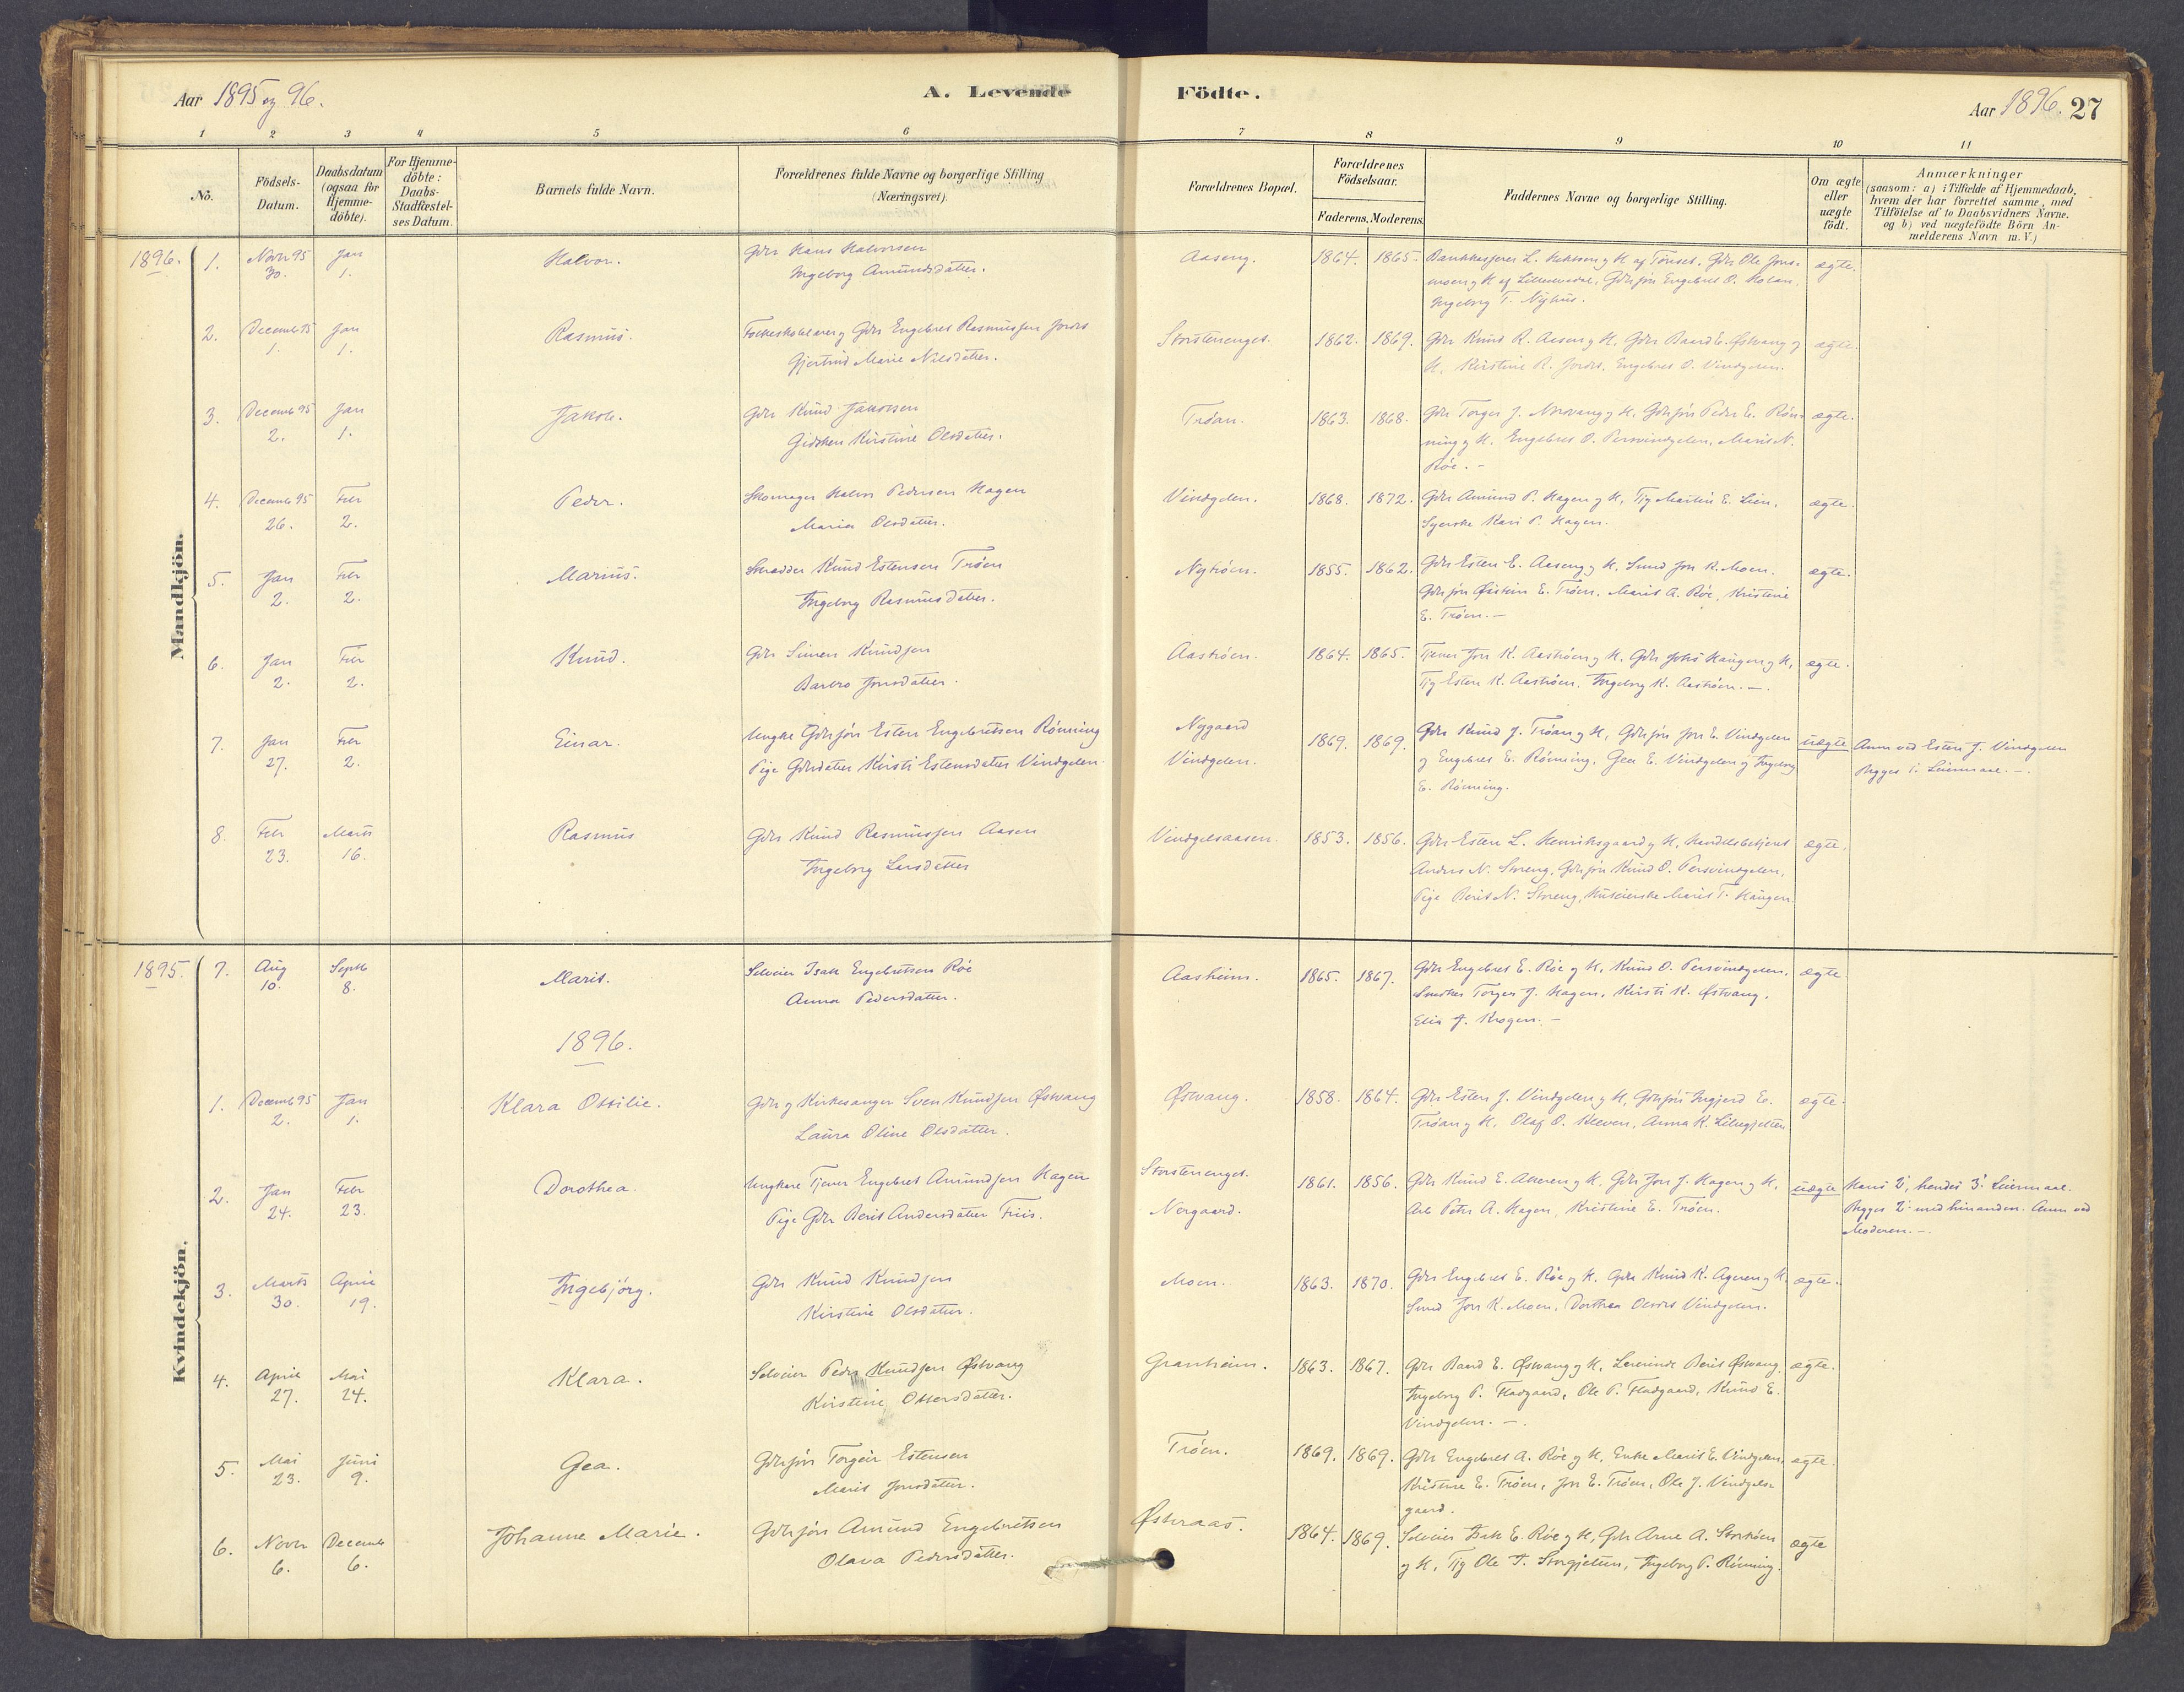 Aar 1895 og 96.
A. Levende Födte.
Aar 1896. 27
1 2 3 4 5 6 7 8 9 10 11
No.
Födsels-Datum.
Daabsdatum (ogsaa for Hjemme-döbte).
For Hjemme-döbte: Daabs-Stadfæstel-ses Datum.
Barnets fulde Navn.
Forældrenes fulde Navne og borgerlige Stilling (Næringsvei).
Forældrenes Bopæl.
Forældrenes Födselsaar.
Faderens. Moderens.
Faddernes Navne og borgerlige Stilling.
Om ægte eller uægte födt.
Anmærkninger
(saasom: a) i Tilfælde af Hjemmedaab,
hvem der har forrettet samme, med
Tilföielse af to Daabsvidners Navne.
og b) ved uægtefödte Börn An-
melderens Navn m. V.)
Mandkjön.
1896. 1. Novr 95 30. Jan 1. Halvor. Gdr Hans Halvorsen
Ingeborg Amundsdatter. Aaseng. 1864. 1865. Gdr Ole
Ingeborg T. Nyhus. ægte.
2. Decemb 95 1. Jan 1. Rasmus. Engebret Rasmussen Jordet
Gjertrud Marie Nilsdatter. Storstenenget. 1862. 1869. Gdr Knud R. Aasen og H. Gdr Baard E. Østvang og
H. Kirstine R. Jordet. Engebret O. Vindgelen. ægte.
3. Decemb 95 2. Jan 1. Jakob. Gdr Knud Jakobsen
Gidsken Kirstine Olsdatter. Trøan. 1863. 1868. Gdr Torger J. Norvang og H. Gdrsøn Peder E. Røn-
ning og H. Engebret O. Persvindgelen, Marit N.
Røe. - ægte.
4. Decemb 95 26. Febr 2. Peder. Skomager Halvor Pedersen Hagen
Maria Olsdatter. Vindgelen. 1868. 1872. Gdr Amund P. Hagen og H, Tjg Martin E. Lien,
Syerske Kari P. Hagen. ægte.
5. Jan 2. Febr 2. Marius. Skrædder Knud Estensen Trøen
Ingeborg Rasmusdatter. Nytrøen. 1855. 1862. Gdr Esten E. Aaseng og H. Smed Jon K. Moen.
Gdrsøn Øistein E. Trøen. Marit A. Røe, Kristine
E. Trøen. - ægte.
6. Jan 2. Febr 2. Knud. Gdr Simen Knudsen
Barbro Jonsdatter. Aastrøen. 1864. 1865. Tjener Jon K. Aastrøen og H. Gdr Johs Haugen og H,
Tjg Esten K. Aastrøen. Ingeborg K. Aastrøen. -. ægte.
7. Jan 27. Febr 2. Einar. Ungkar Gdrsøn Esten Engebretsen Rønning
Pige Gdrdatter Kirsti Estensdatter Vindgelen. Nygaard
Vindgelen. 1869. 1869. Gdr Knud J. Trøan og H, Gdrsøn Jon E. Vindgelen
og Engebret E. Rønning, Gea E. Vindgelen og Ingeborg
E. Rønning. uægte Anm ved Esten J. Vindgelen
Begges 1' Leiermaal. -.
8. Febr 23. Marts 16. Rasmus Gdr Knud Rasmussen Aasen
Ingeborg Larsdatter Vindgelsaasen. 1853. 1856. Gdr Esten L. Henriksgaard og H, Handelsbetjent
Anders N. Storeng, Gdrsøn Knud O. Persvindgelen,
Pige Berit N. Storeng, Marit T. Haugen. ægte.
Kvindekjön.
1895. 7. Aug 10. Septb 8. Marit. Selveier Isak Engebretsen Røe
Anna Pedersdatter. Aasheim. 1865. 1867. Gdr Engebret E. Røe og H, Knud O. Persvindgelen.
Snedker Torger J. Hagen, Kirsti K. Østvang,
Elin J. Krogen. - ægte
1896.
1. Decemb 95 2. Jan 1. Klara Ottilie. Gdr og Kirkesanger Sven Knudsen Østvang
Laura Oline Olsdatter. Østvang. 1858. 1864. Gdr Esten J. Vindgelen og H, Gdrsøn Ingjerd E.
Trøan og H. Olaf O. Kleven, Anna K. Lillegjelten ægte.
2. Jan 24. Febr 23. Dorothea. Ungkarl Tjener Engebret Amundsen Hagen
Pige Gdr Berit Andersdatter Friis. Storstenenget.
Nergaard. 1861. 1856. Gdr Knud E. Akeren og H, Gdr Jon J. Hagen og H,
Arb Peter A. Hagen, Kristine E. Trøen. uægte Hans 2', hendes 3' Leiermaal.
Begges 2' med hinanden. Anm ved
Moderen. -.
3. Marts 30. April 19. Ingebjörg. Gdr Knud Knudsen
Kirstine Olsdatter. Moen. 1863. 1870. Gdr Engebret E. Røe og H. Gdr Knud K. Ageren og H.
Smed Jon K. Moen, Dorthea Olsdt Vindgelen. ægte.
4. April 27. Mai 24. Klara. Selveier Peder Knudsen Østvang
Kirstine Ottersdatter. Granheim. 1863. 1867. Gdr Baard E. Østvang og H, Berit Østvang,
Ingeborg P. Fladgaard, Ole P. Fladgaard, Knud E.
Vindgelen. -. ægte.
5. Mai 23. Juni 9. Gea. Gdrsøn Torgeir Estensen
Marit Jonsdatter. Trøen. 1869. 1869. Gdr Engebret A. Røe og H, Enke Marit E. Vindgelen,
Kristine E. Trøen, Jon E. Trøen, Ole J. Vindgels-
gaard. ægte.
6. Novr 6. Decemb 6. Johanne Marie. Gdrsøn Amund Engebretsen
Olava Pedersdatter. Østeraas. 1864. 1869. Selveier Isak E. Røe og H, Gdr Arne A. Stortrøen
og H, Tjg Ole T. Storgjelten, Ingeborg P. Rønning. ægte